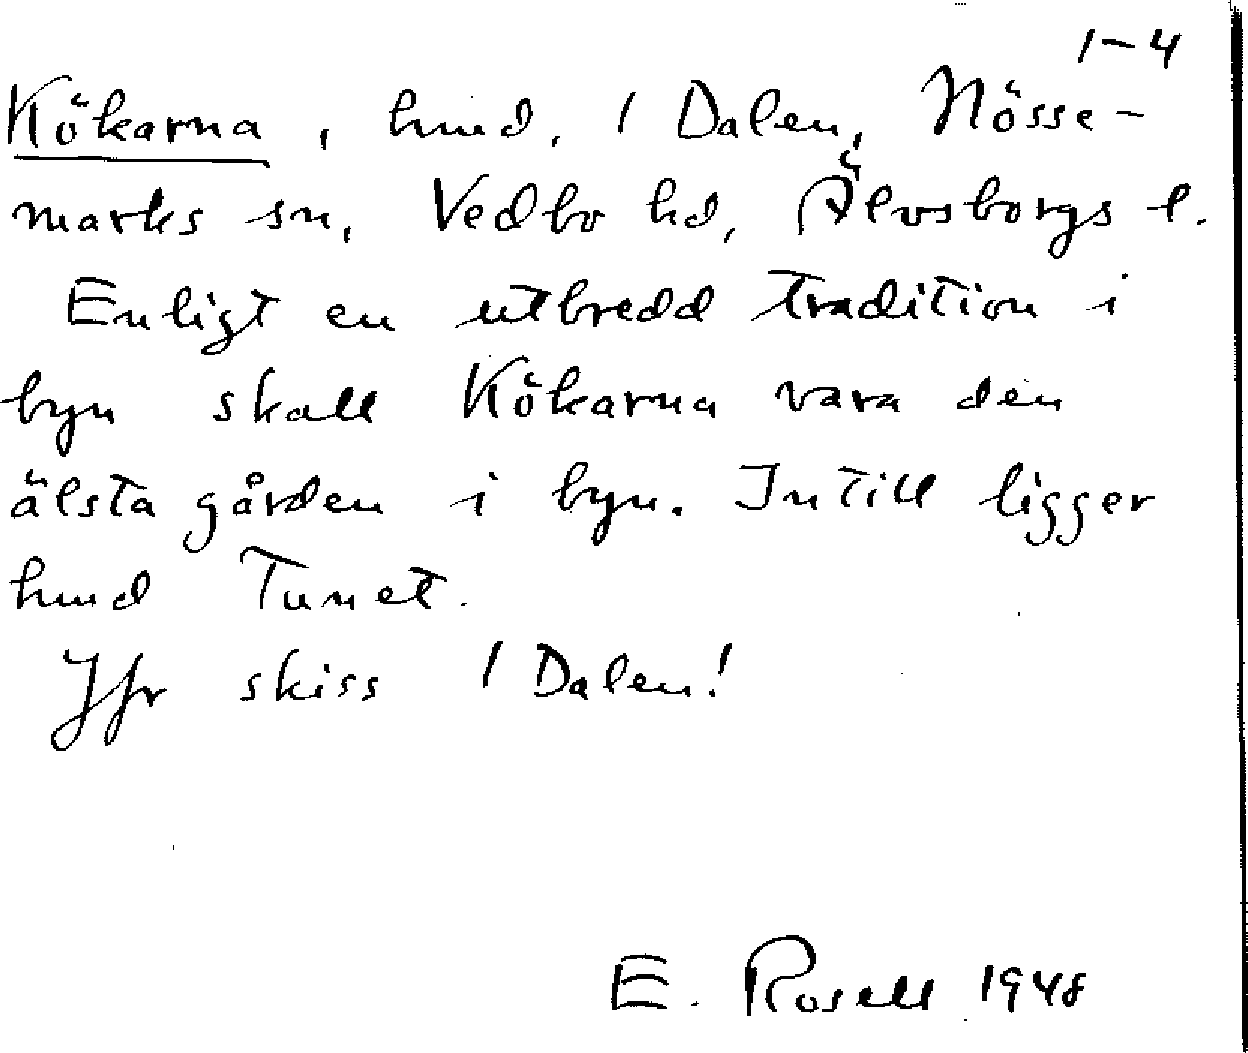 1-4
Kökarna, hmd, 1 Dalen, Nösse-
marks sn, Vedbo hd, Älvsborgs l.
Enligt en utbredd tradition i
byn skall Kökarna vara den
älsta gården i byn. Intill ligger
hmd Tunet.
Jfr skiss 1 Dalen!
E. Rosell 1948